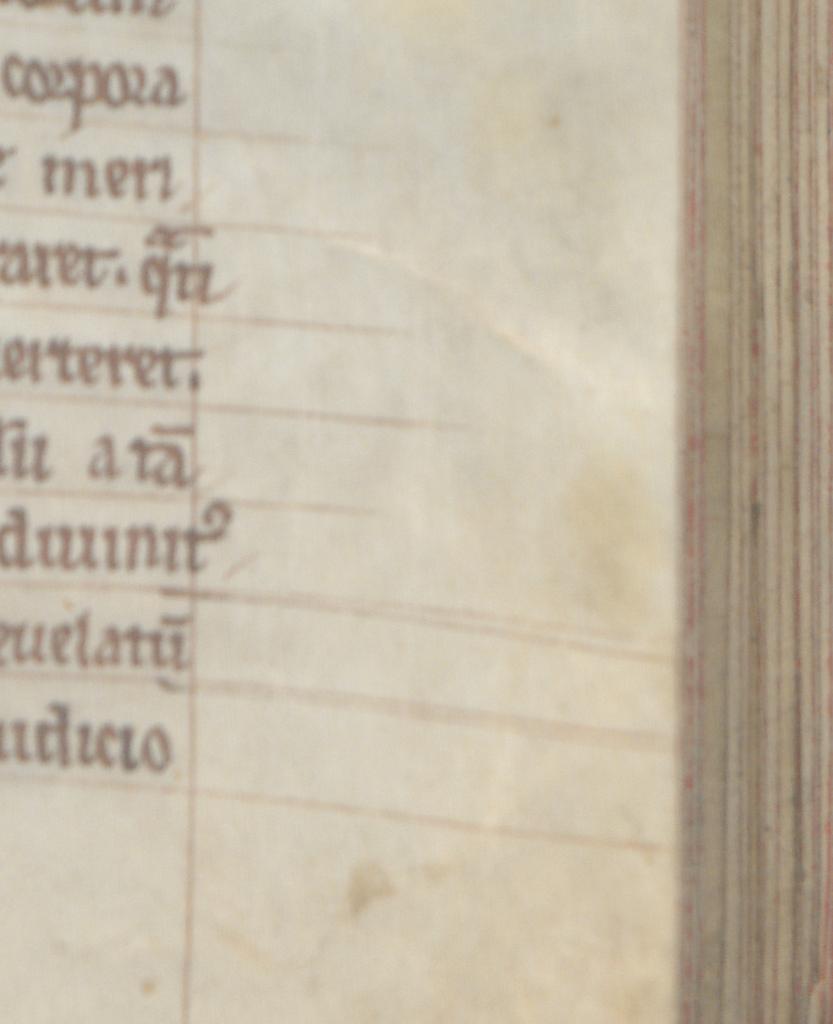 corpora
meri
aret. q̄m
erteret.
a tā
diuinit᾽
euelatū
iudicio